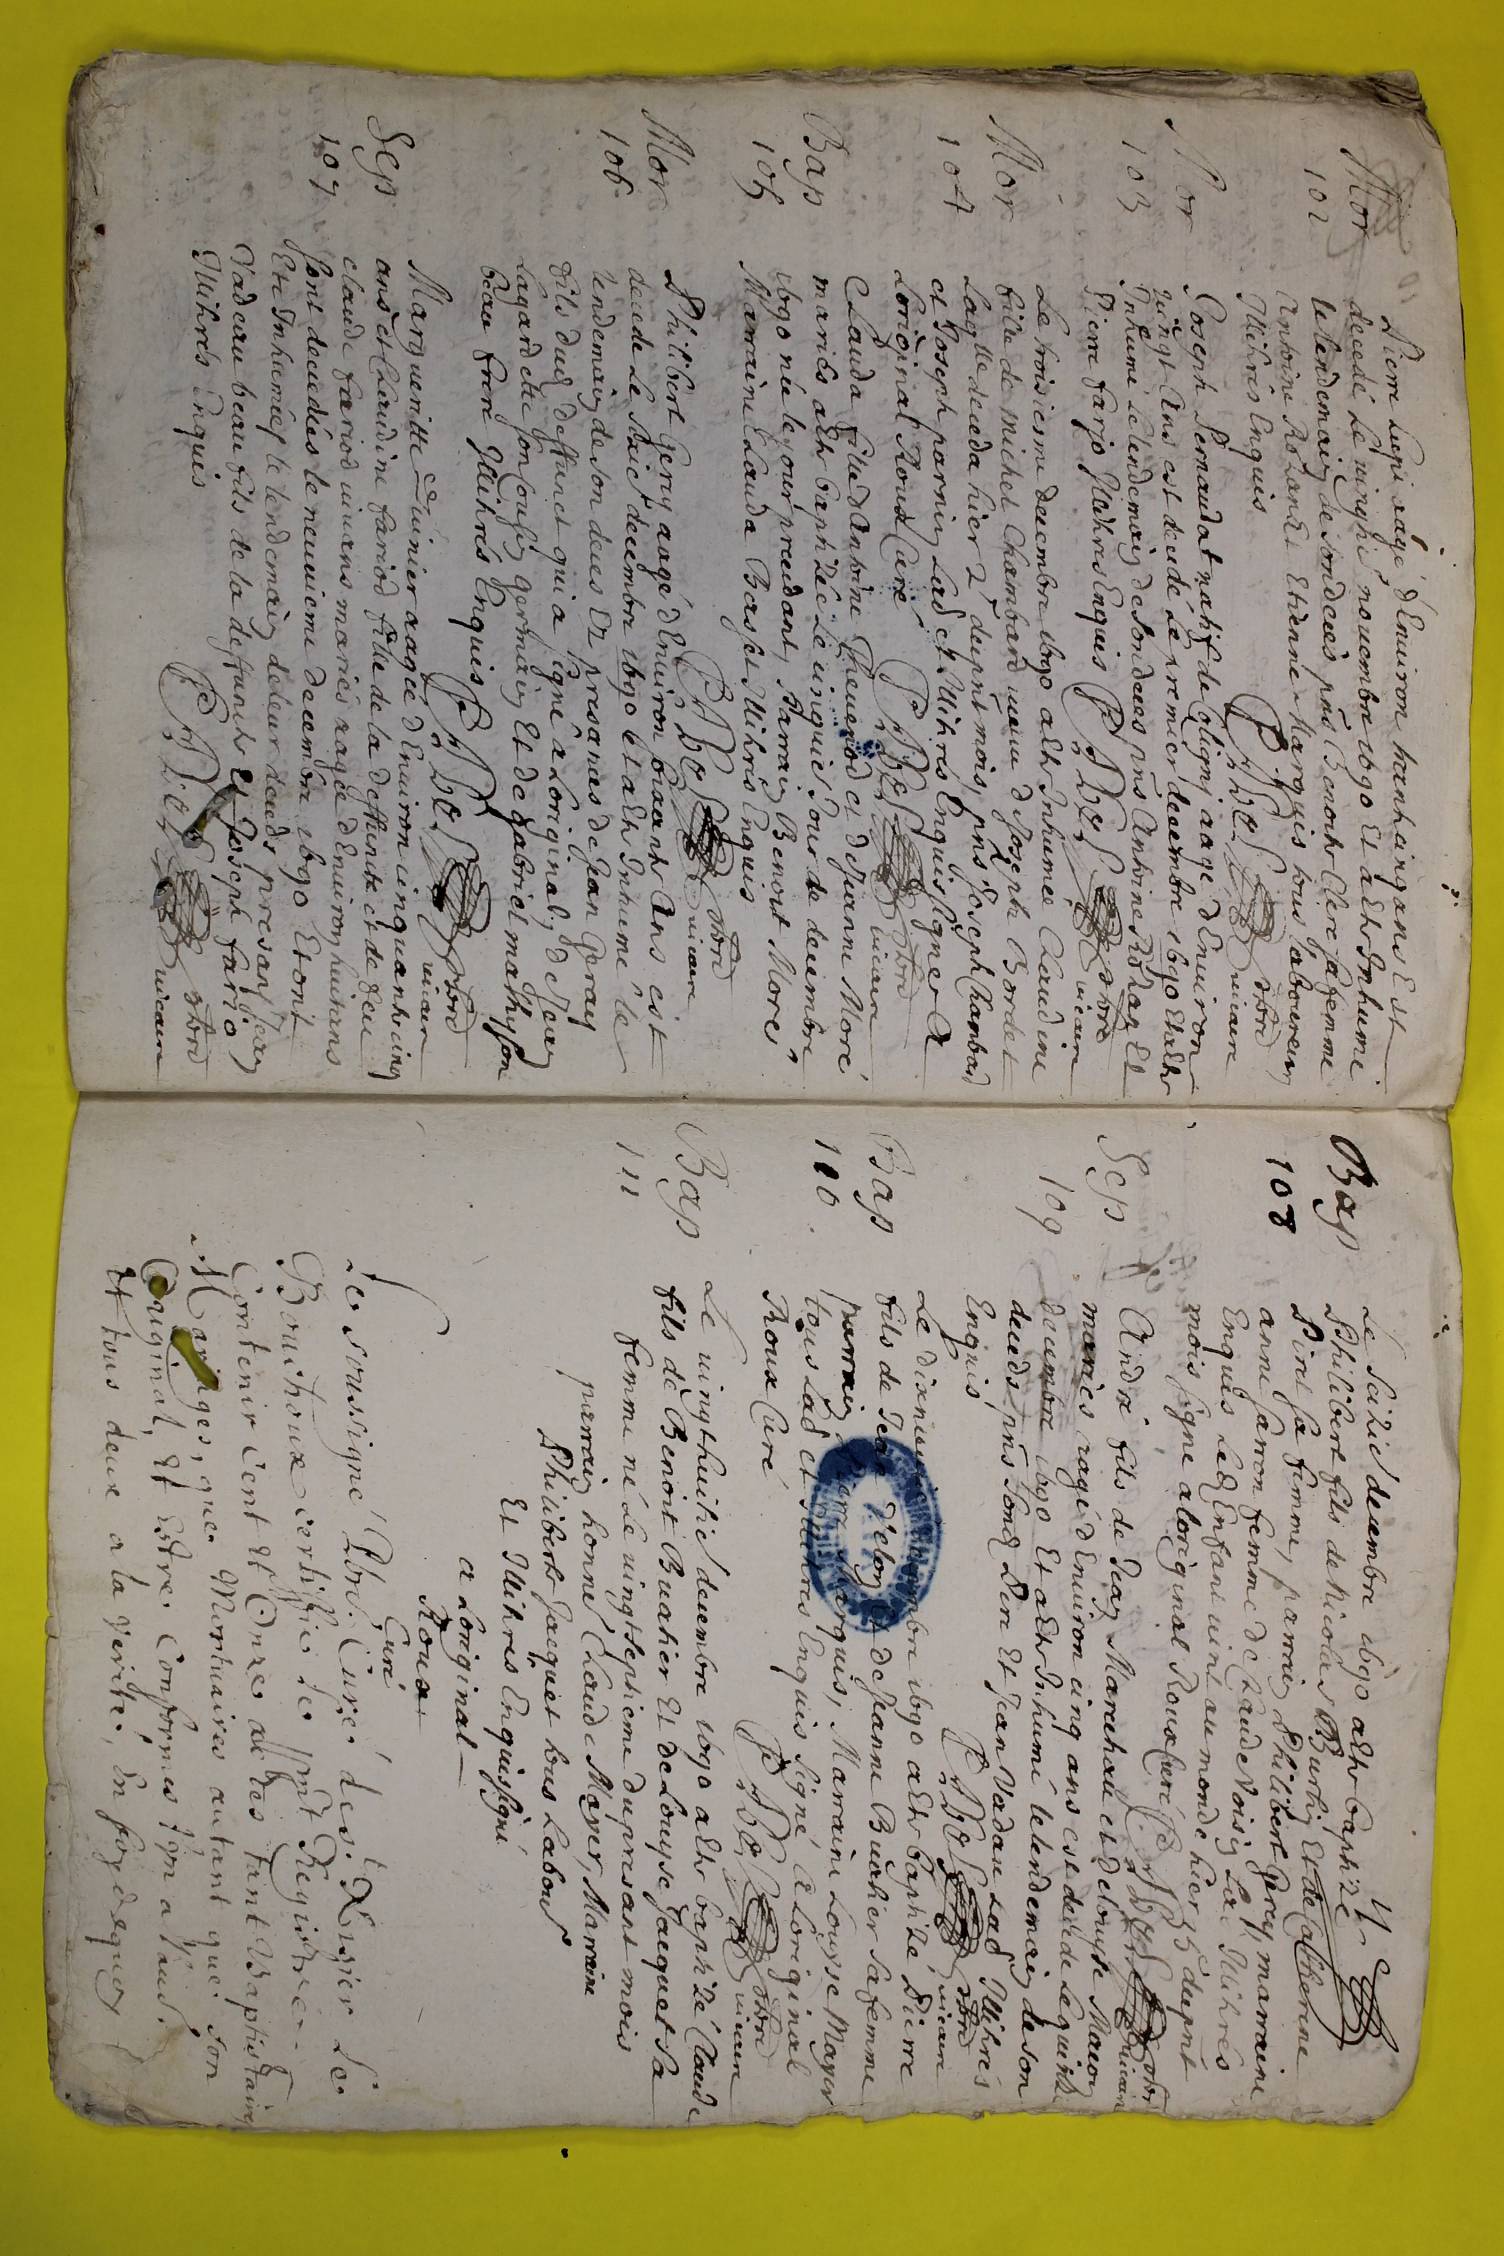 Mor
102
Pierre Lupi aagé d'Enuiron trente cinq ans Est
decedé le uingtie nouembre 1690 Et a este Inhumé
le lendemain de son decés pnts Benoite Clerc sa femme
Antoine Roland Et Etienne Marquis tous laboureurs
Illitrés Enquis
vicaire
Mor
103
Joseph Pernaudat natif de Coligny aagé d'Enuiron
uingt Ans est decedé le premier decembre 1690 Et a este
Inhumé le lendemain de son deces pnts Antoine Roland Et
Pierre farjo Illitrés Enquis
vicaire
Mor
104
Le troisieme decembre 1690 a este Inhumée Claudine
fille de michel Chambard ueuue de Joseph Bordet
Laqlle deceda hier 2e du pnt mois, pnts Joseph Chambard
et Joseph parnin Lad et Illitrés Enquis signer a
Loriginal Roux Curé
vicaire
Bap
105
Clauda fille d'Antoine Theuenod et de Jeanne Moré
mariés a este baptizée le cinquie Jour de decembre
1690 née le jour precedant, Parrain Benoit Moré
Marraine Clauda Basset Illitrés Enquis
vicaire
Mor
106
Philibert Gerey aagé d'Enuiron soixante Ans est
decedé le sixie decembre 1690 Et a este Inhumé le
lendemain de son deces Ez presances de Jean Gerey
fils dud deffunct qui a signé a Loriginal, de Jean
Lagardette son Cousin germain Et de gabriel mathy son
beau frere Illitrés Enquis
vicaire
Sep
107
Margueritte Cuinier aagée d'Enuiron cinquante cinq
ans et Claudine fariod fille de la deffuncte et de feu
claude fariod uiuans mariés aagée d'Enuiron huit ans
sont decedées le neuuieme decembre 1690 Et ont
Esté Inhumées le lendemain de leur deceds presans Jean
Vadeau beau fils de la deffuncte Et Joseph fario
Illitrés Enquis
vicaire
Bap
108
Le Seizie decembre 1690 a este baptizé
Philibert fils de Nicolas Burtin Et de Catherine
Piret sa femme, parrain Philibert Gerey, marraine
anne farron femme de Claude Voisin Lad Illitrés
Enquis led Enfant uint au monde hier 15e du pnt
mois signé a loriginal Roux Curé
vicaire
Sep
109
André fils de Jean Marechau et de Louyse Mauon
mariés aagé d'Enuiron cinq ans est decedé le quinzie
decembre 1690 Et a este Inhumé le lendemain de son
deceds pnts sond Pere Et Jean Vadau Lad Illitrés
Enquis
vicaire
Bap
110
Le dixneuuie decembre 1690 a este baptizé Pierre
fils de Jean Et de Jeanne Buatier sa femme
parrain Marquis, Marraine Louyse Mayer
tous Lad et Illitrés Enquis signé a Loriginal
Roux Curé
vicaire
Bap
111
Le uingthuitie decembre 1690 a este baptizé Claude
fils de Benoit Buatier Et de Louyse Jacquet sa
femme né Le uingtseptieme du presant mois
parrain honne Claude Mayer, Marraine
Philiberte Jacquet tous Labours
Et Illitrés Enquis signé
a Loriginal
Roux
Curé
Je soussigné Pbre Curé de St Nizier Le
Bouchoux certiffie le pnt Registre
Contenir Cent Et Onze actes tant Baptistaires
Mariages, que Mortuaires autant que son
Original, Et Estre Conformes l'un a l'autre
Et tous deux a la Verité, En foy dequoy